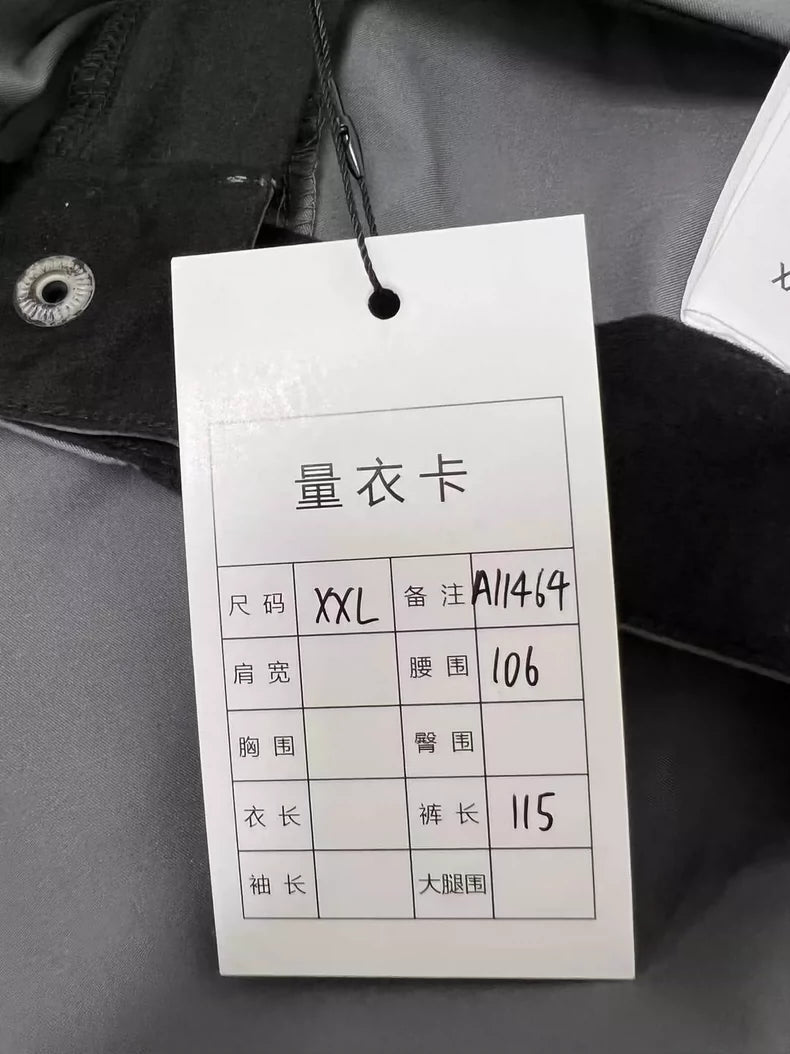 量衣卡
尺码 XXL 备注 A11464
肩宽 腰围 106
胸围 臀围
衣长 裤长 115
袖长 大腿围